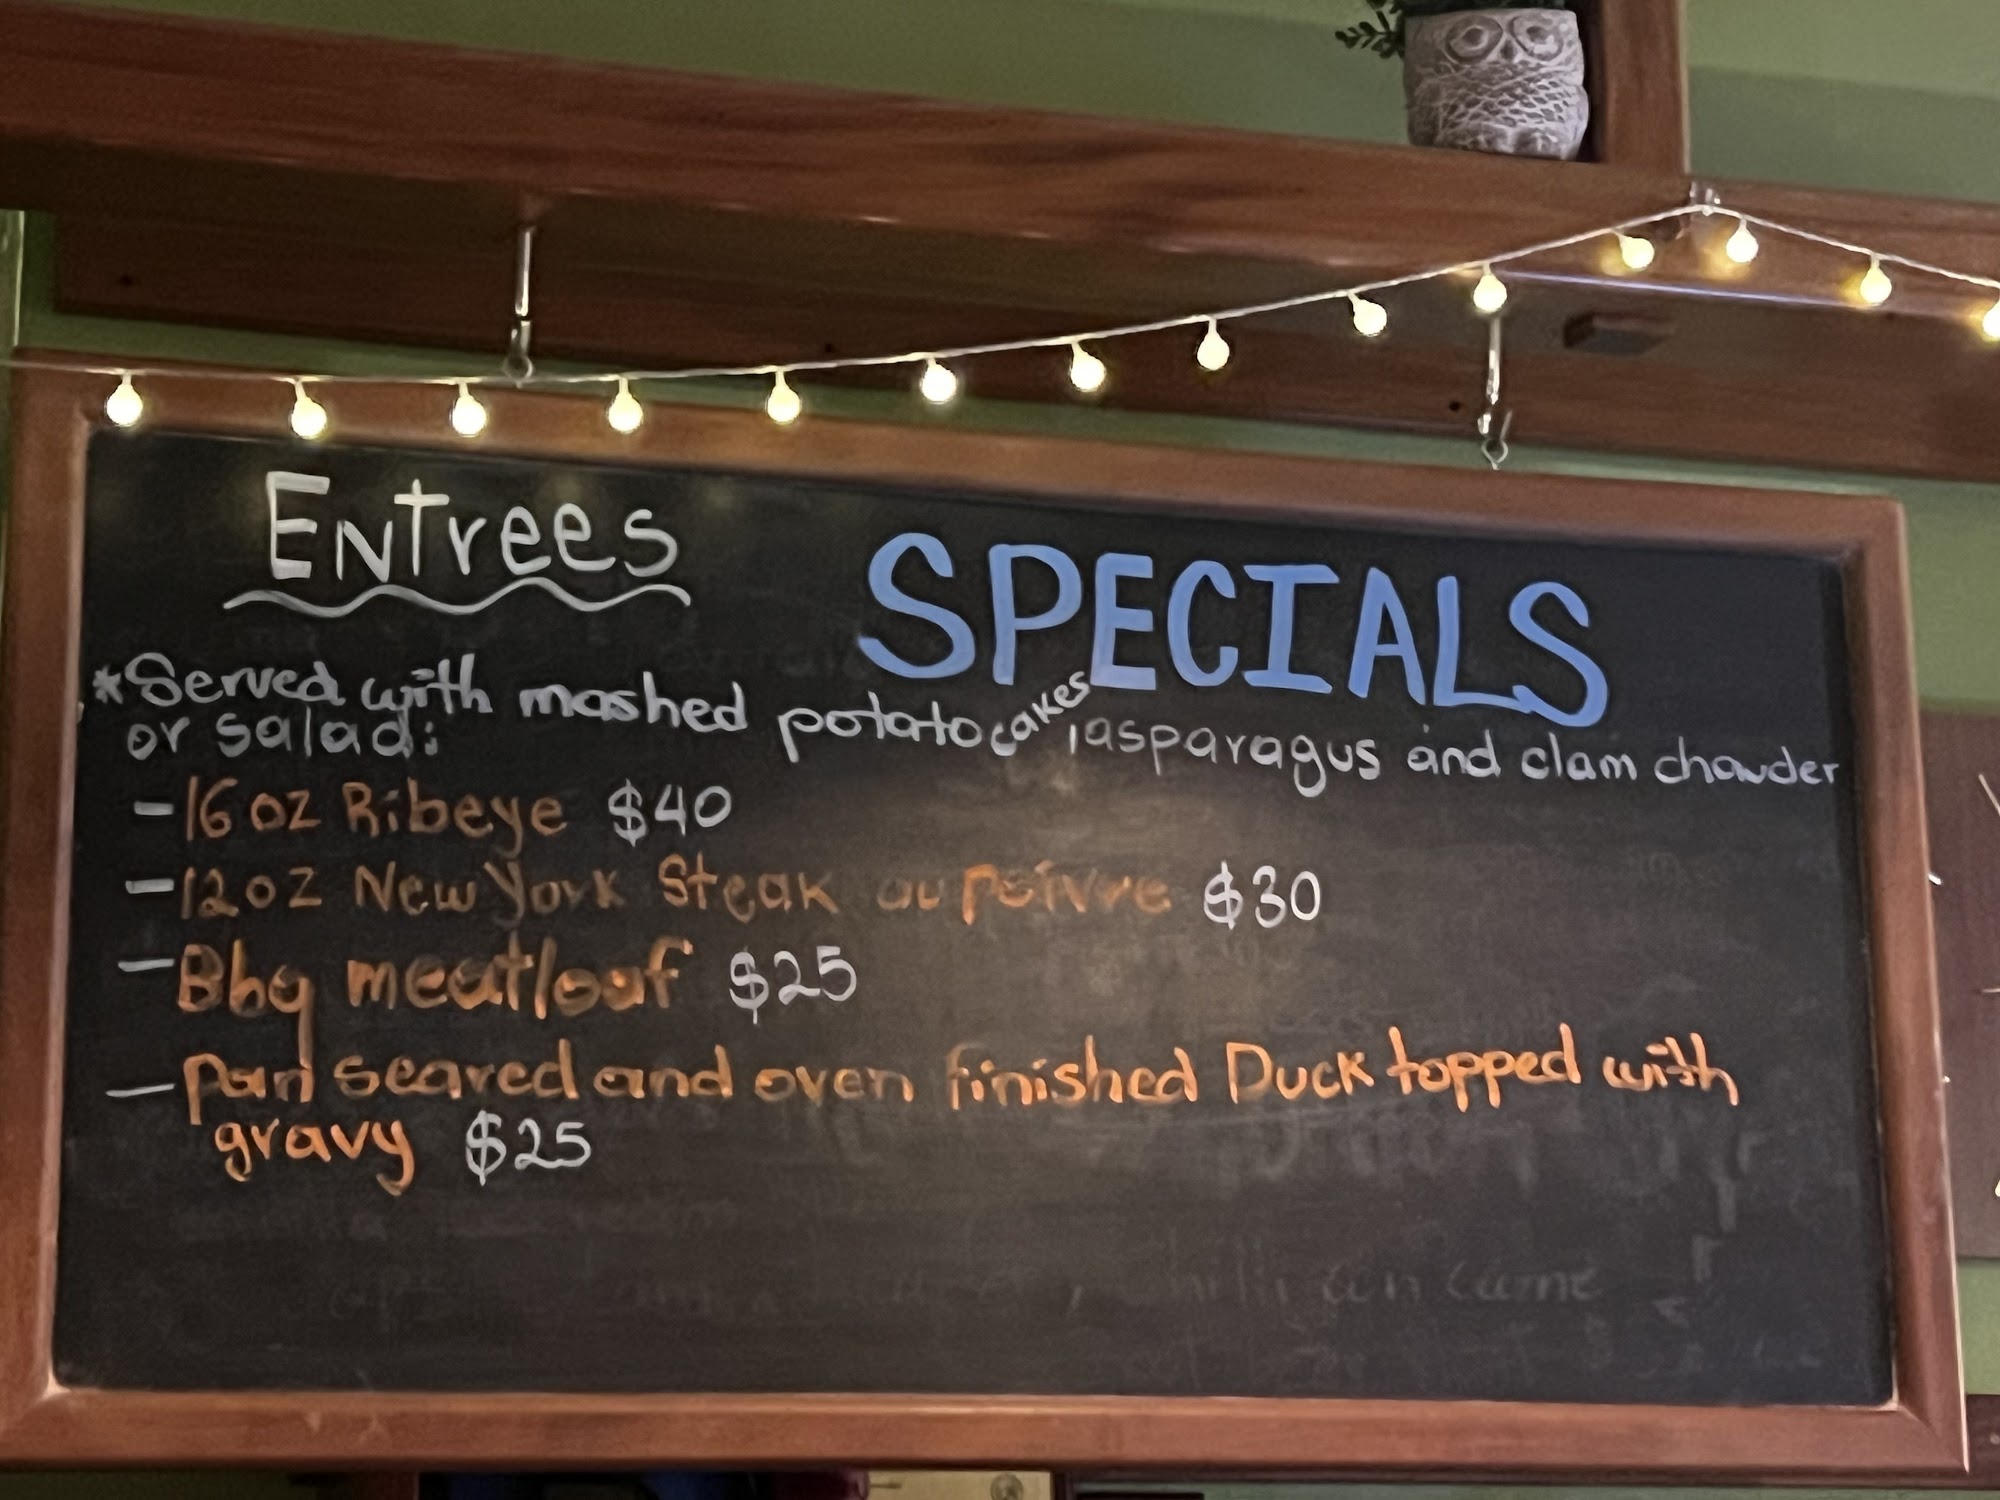 Entrees
SPECIALS
*Served with mashed potato cakes, asparagus and clam chowder
or salad:
- 16 oz Ribeye $40
- 12 oz New York Steak au poivre $30
- Bbq meatloaf $25
- pan seared and oven finished Duck topped with
gravy $25